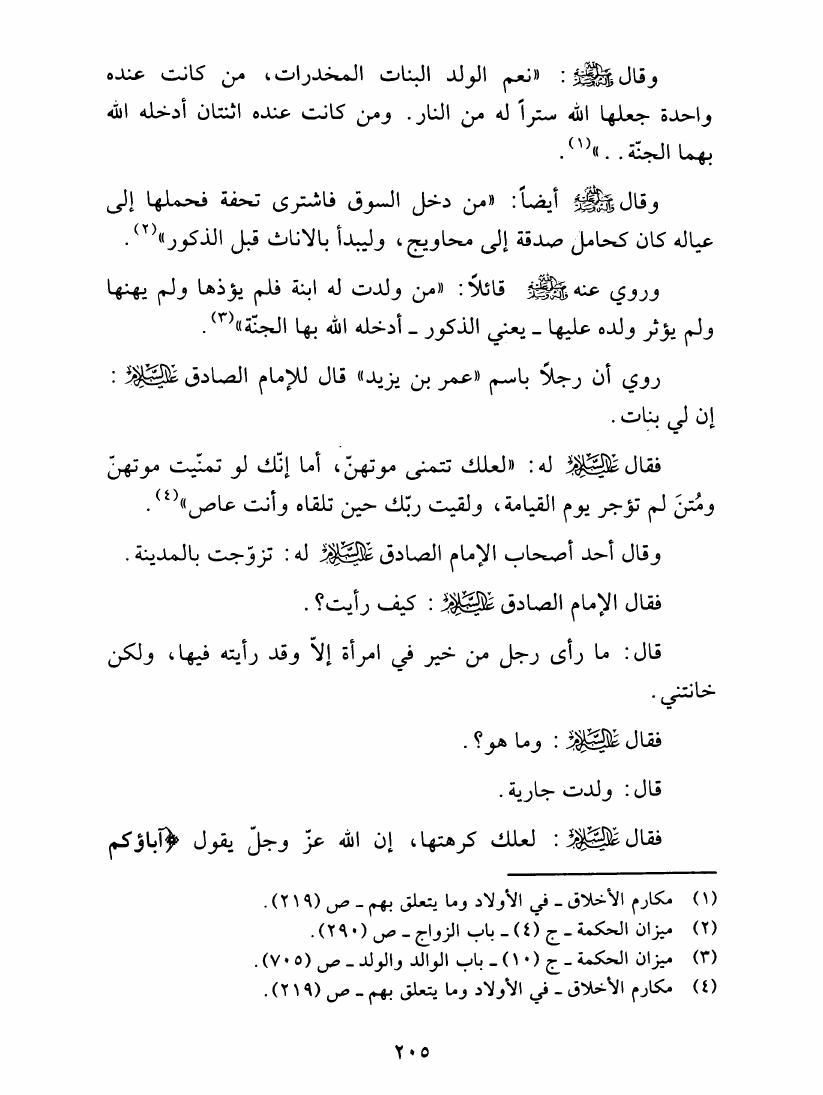 وقال ﷺ : «نعم الولد البنات المخدرات، من كانت عنده
واحدة جعلها الله ستراً له من النار. ومن كانت عنده اثنتان أدخله الله
بهما الجنّة. .»(١).
وقال ﷺ أيضاً: «من دخل السوق فاشترى تحفة فحملها إلى
عياله كان كحامل صدقة إلى محاويج، وليبدأ بالاناث قبل الذكور»(٢).
وروي عنه ﷺ قائلاً: «من ولدت له ابنة فلم يؤذها ولم يهنها
ولم يؤثر ولده عليها ـ يعني الذكور ـ أدخله الله بها الجنّة»(٣).
روي أن رجلاً باسم «عمر بن يزيد» قال للإمام الصادق عليه السلام :
إن لي بنات.
فقال عليه السلام له: «لعلك تتمنى موتهنّ، أما إنّك لو تمنّيت موتهنّ
ومُتنَ لم تؤجر يوم القيامة، ولقيت ربّك حين تلقاه وأنت عاص»(٤).
وقال أحد أصحاب الإمام الصادق عليه السلام له: تزوّجت بالمدينة.
فقال الإمام الصادق عليه السلام : كيف رأيت؟.
قال: ما رأى رجل من خير في امرأة إلاّ وقد رأيته فيها، ولكن
خانتني.
فقال عليه السلام : وما هو؟.
قال: ولدت جارية.
فقال عليه السلام : لعلك كرهتها، إن الله عزّ وجلّ يقول ﴿آباؤكم
(١) مكارم الأخلاق ـ في الأولاد وما يتعلق بهم ـ ص (٢١٩).
(٢) ميزان الحكمة ـ ج (٤) ـ باب الزواج ـ ص (٢٩٠).
(٣) ميزان الحكمة ـ ج (١٠) ـ باب الوالد والولد ـ ص (٧٠٥).
(٤) مكارم الأخلاق ـ في الأولاد وما يتعلق بهم ـ ص (٢١٩).
٢٠٥